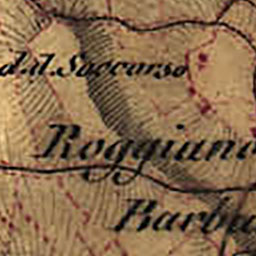 d.d. Soccorso
Roggiano
Barba